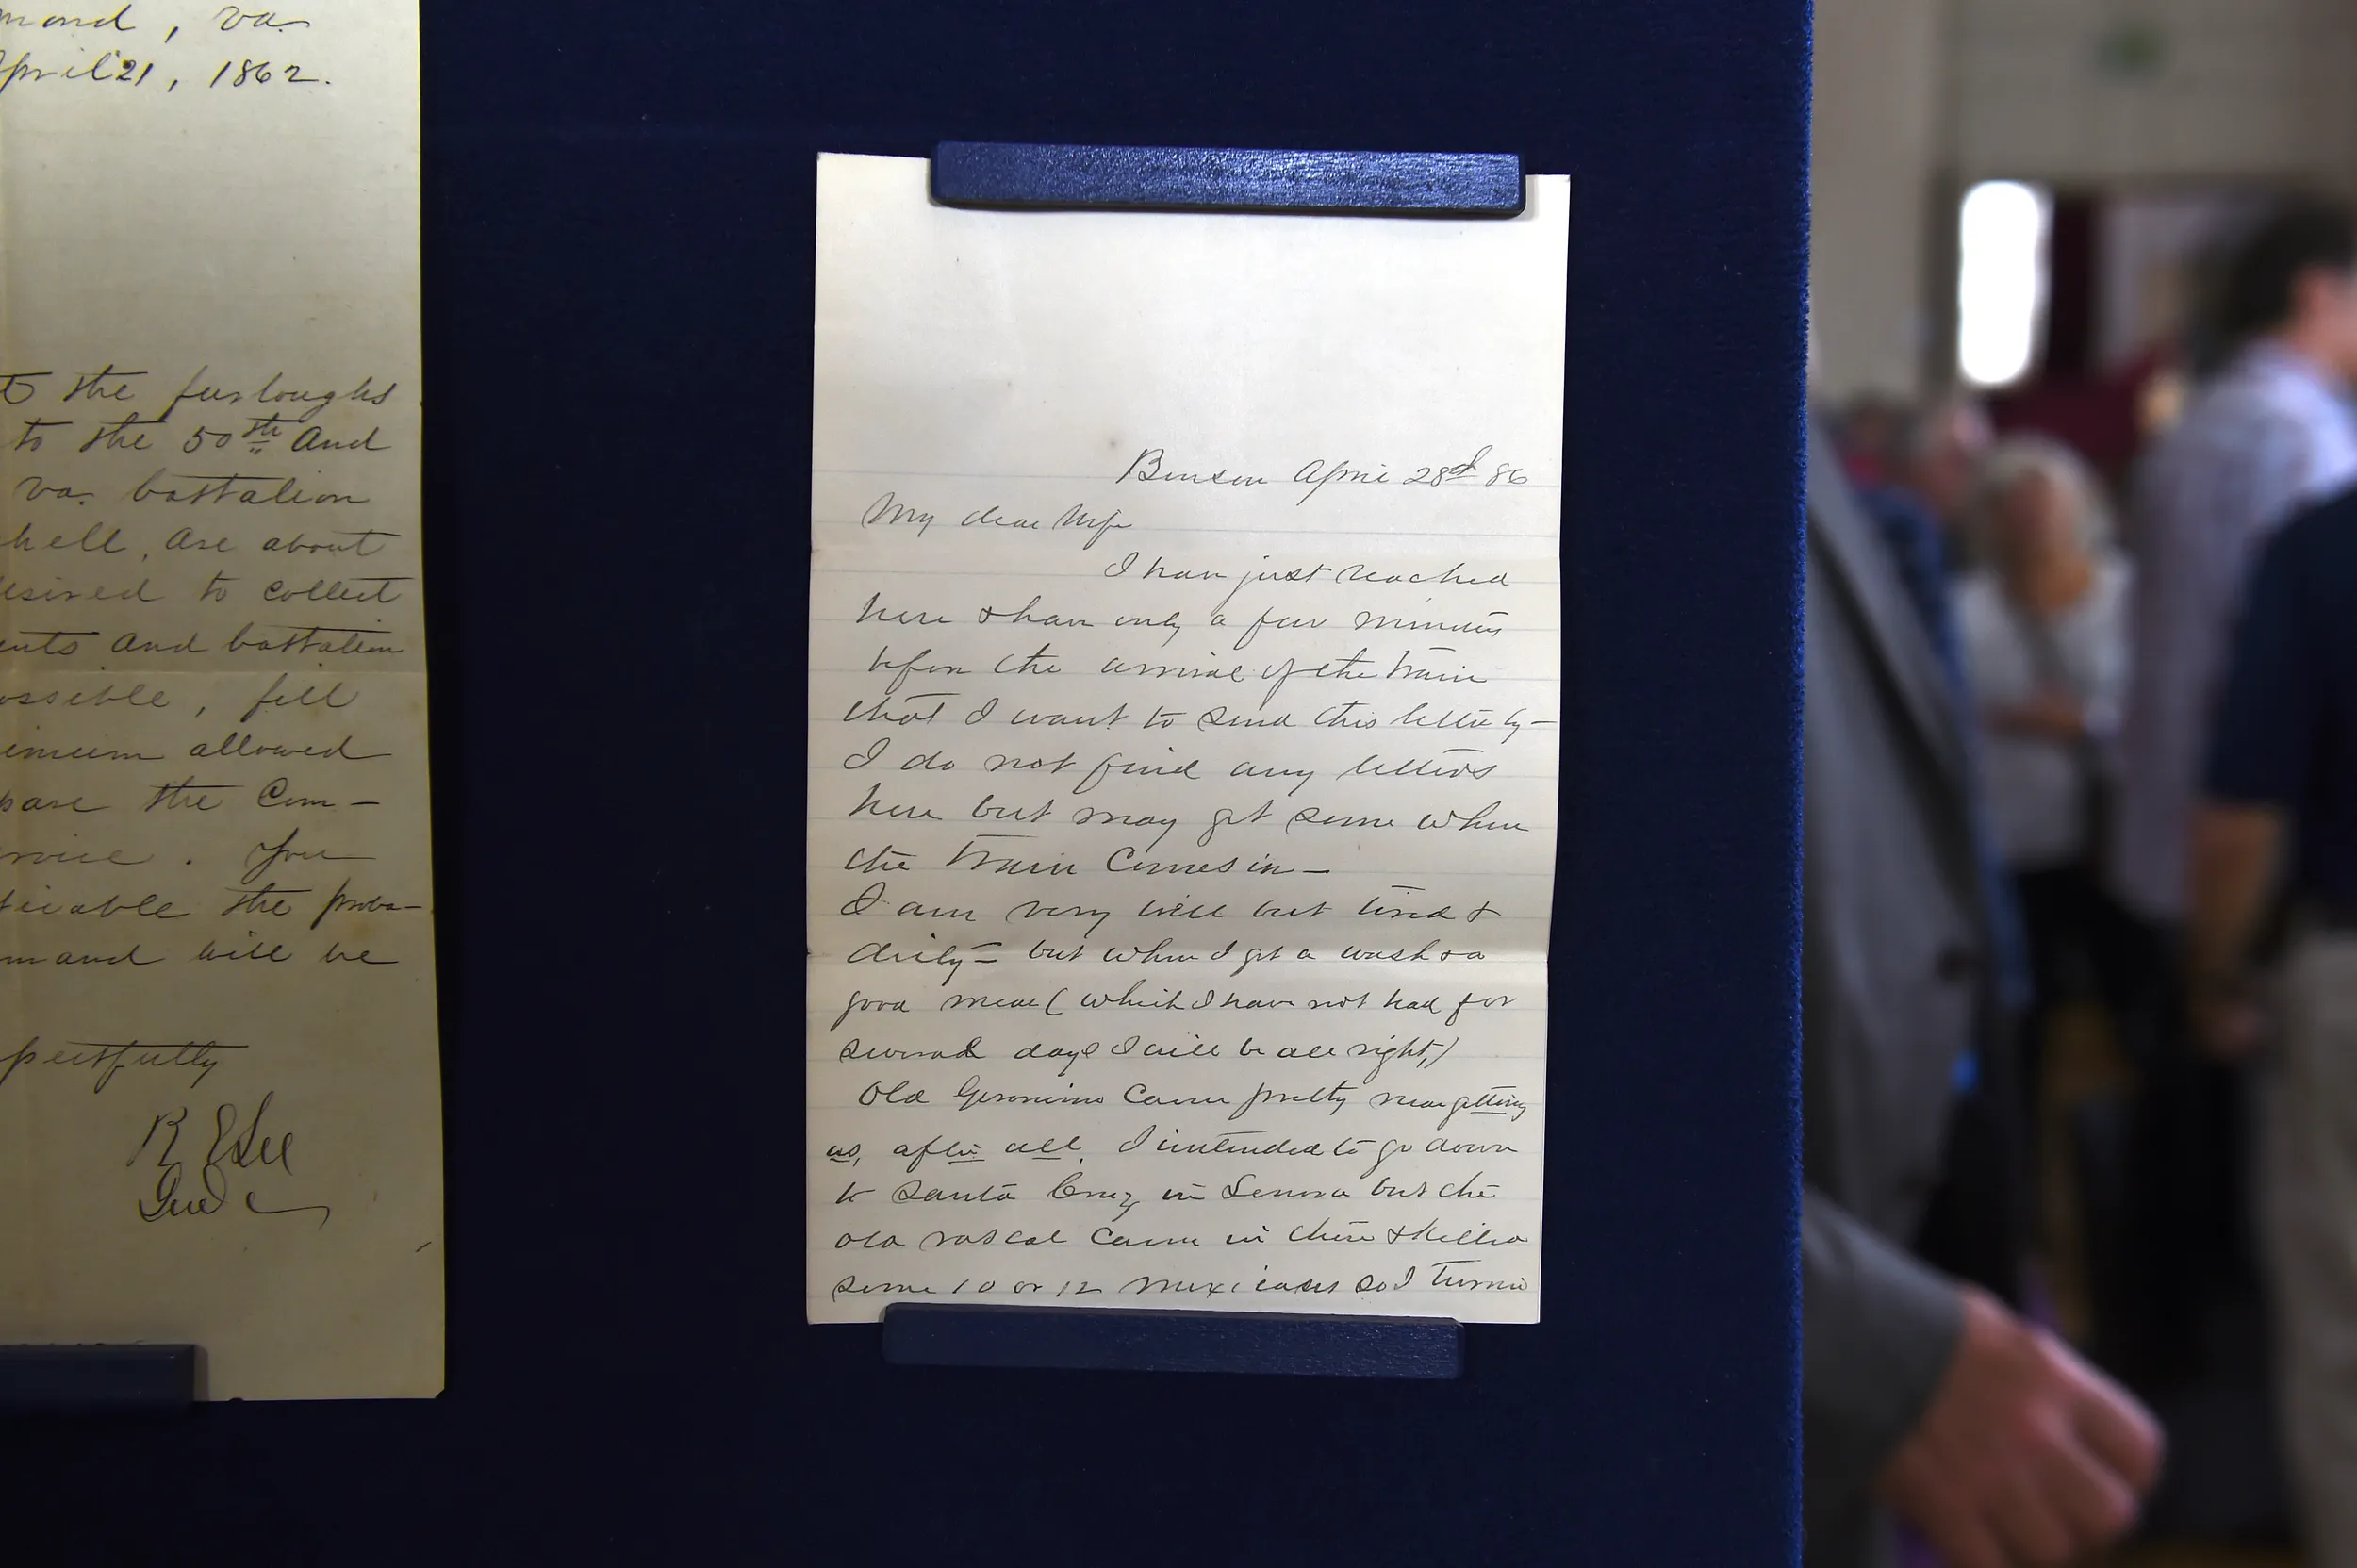 mond, va.
April 21, 1862.
to the furloughs
to the 50th and
va. battalion
hell, are about
desired to collect
ents and battalion
ossible, fill
imum allowed
pare the Com-
ervice. You
ticable the proba-
mmand will be
pectfully
R E Lee
Genl
Benson April 28d 86
My dear Wife
I have just reached
here & have only a few minutes
before the arrival of the train
that I want to send this letter by-
I do not find any letters
here but may get some when
the train comes in-
I am very well but tired &
dirty- but when I get a wash & a
good meal ( which I have not had for
several days I will be all right,)
Old Geronimo came pretty near getting
us, after all. I intended to go down
to Santa Cruz in Sonora but the
old rascal came in there & killed
some 10 or 12 Mexicans so I turned